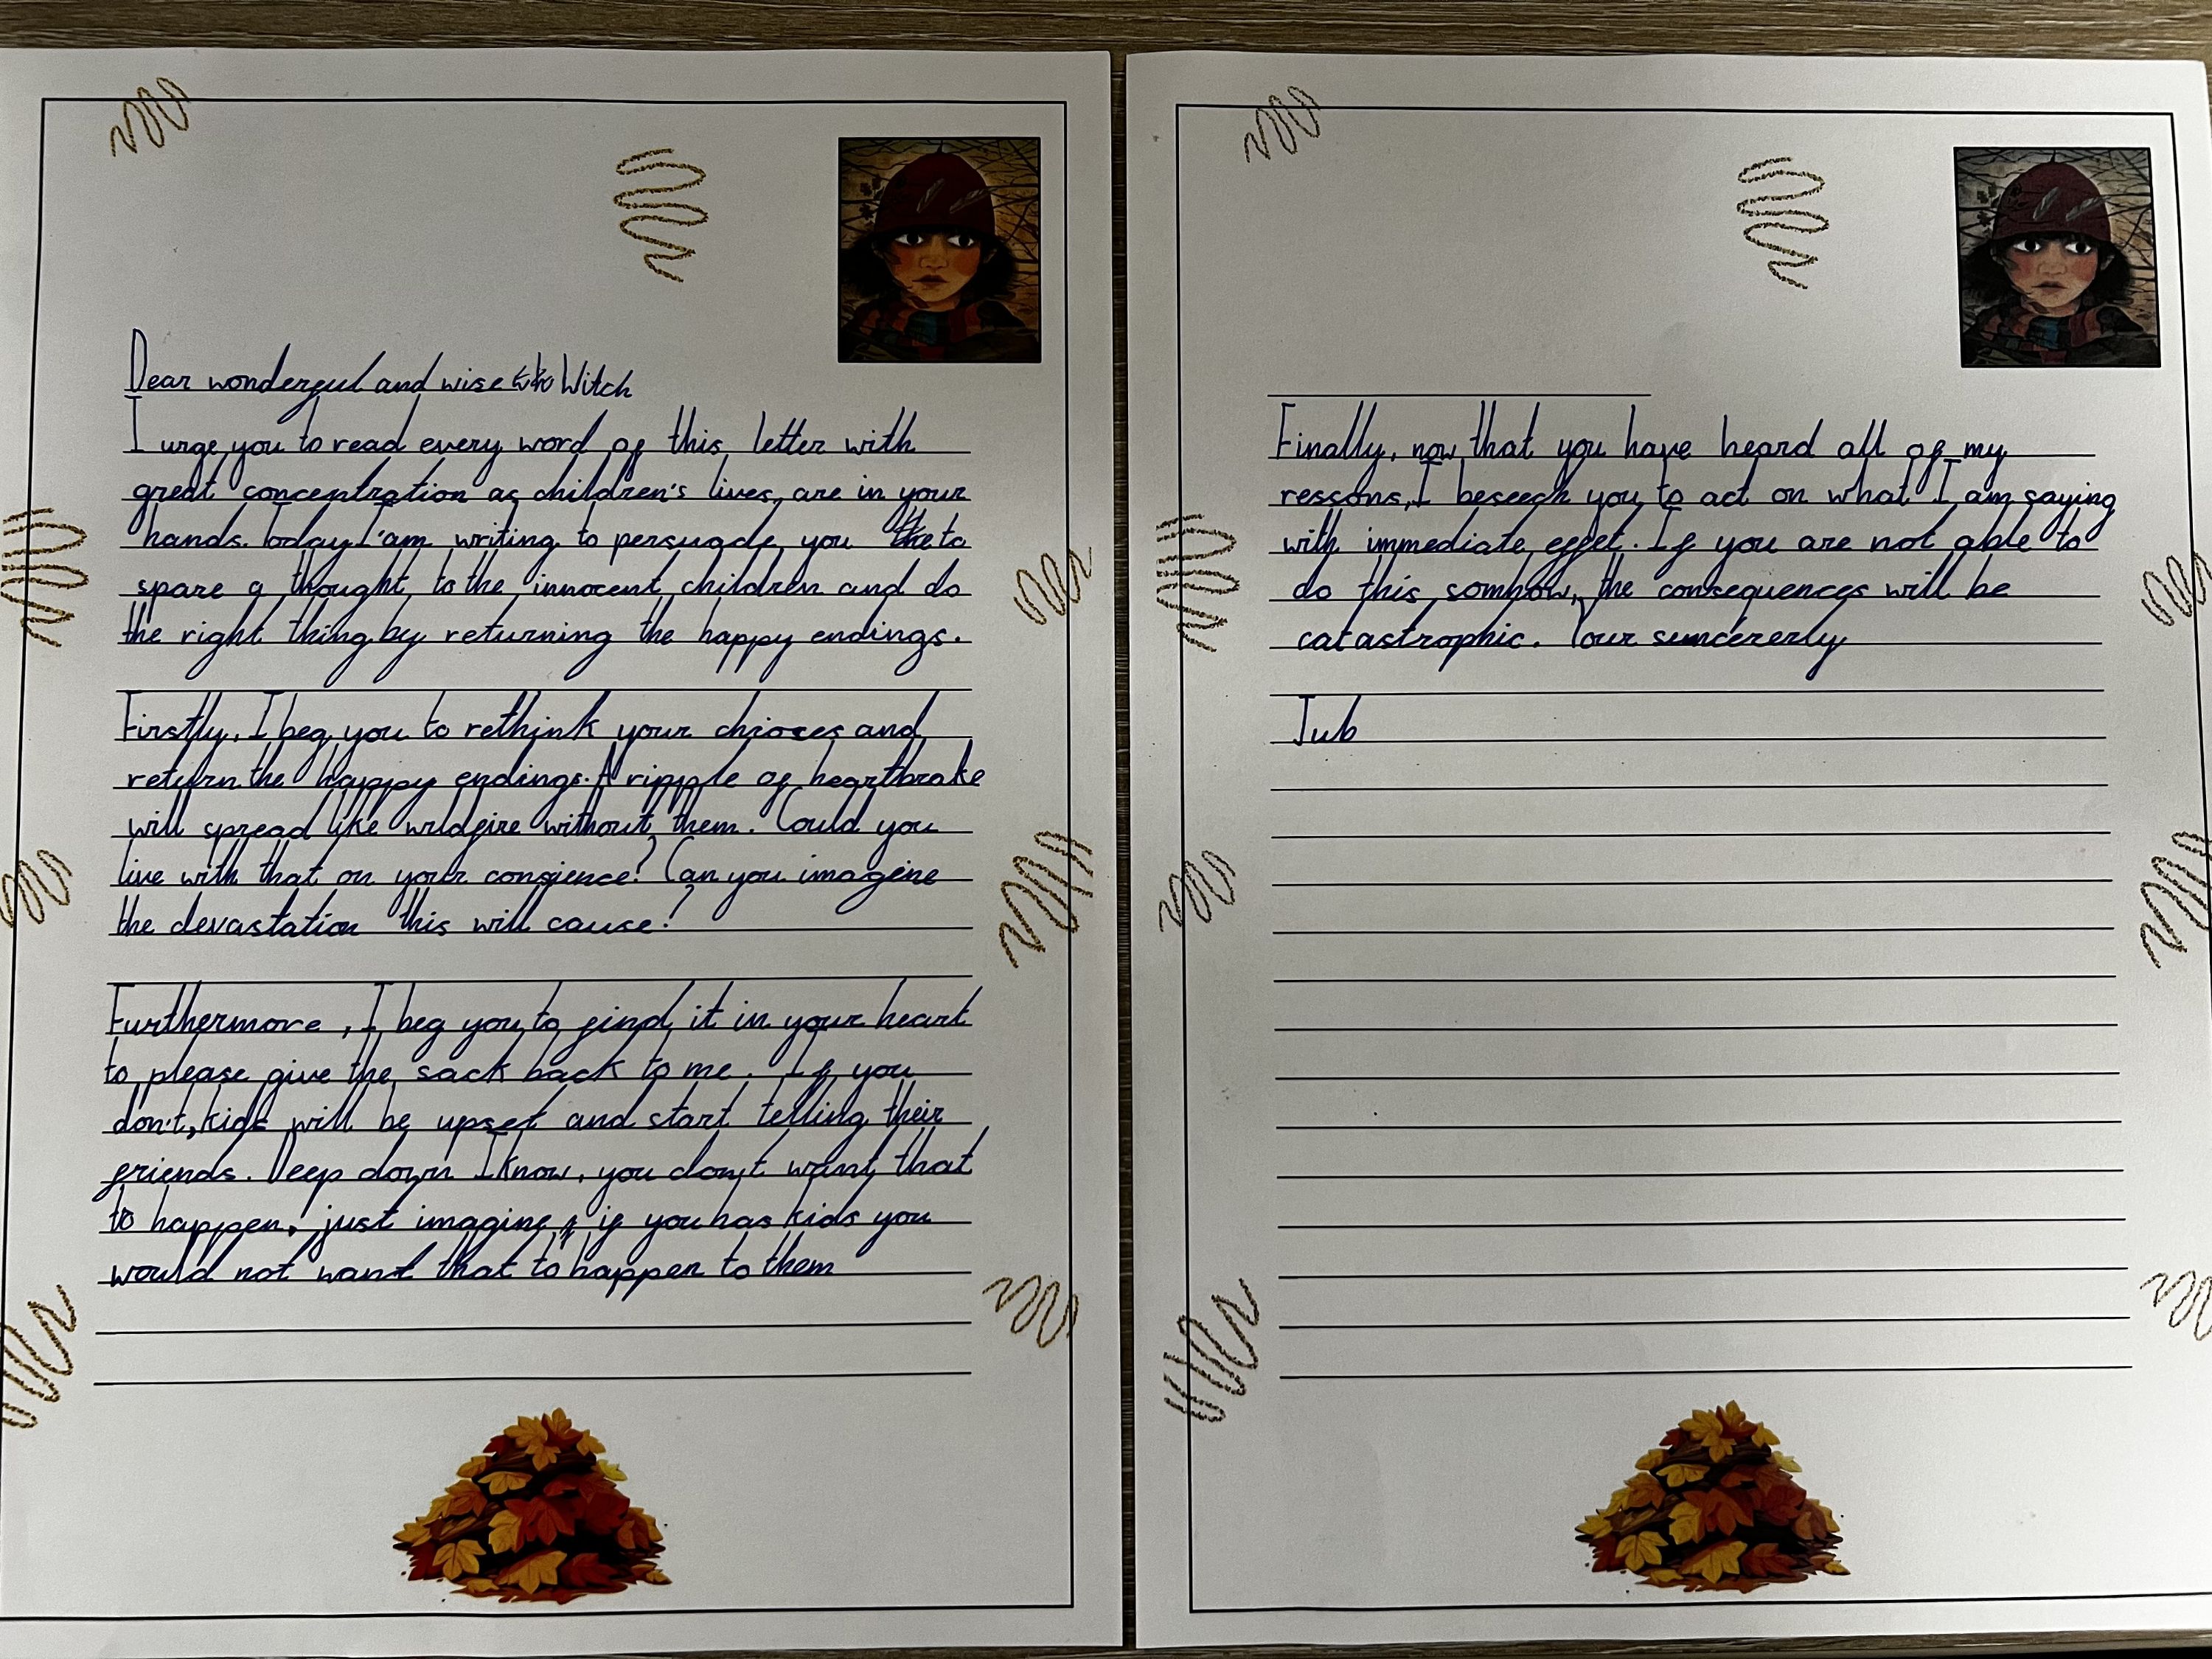 Dear wonderful and wise Witch
I urge you to read every word of this letter with
great concentration as children's lives are in your
hands. Today I'am writing to persuade you to
spare a thought to the innocent children and do
the right thing by returning the happy endings.
Firstly, I beg you to rethink your chioces and
return the happy endings. A ripple of heartbrake
will spread like wildfire without them. Could you
live with that on your consience? Can you imagine
the devastation this will cause?
Furthermore, I beg you to find it in your heart
to please give the sack back to me. If you
don't, kids will be upset and start telling their
friends. Deep down I know, you don't want that
to happen, just imagine, if you has kids you
would not want that to happen to them
Finally, now that you have heard all of my
ressons, I beseech you to act on what I am saying
with immediate effet. If you are not able to
do this somhow, the consequences will be
catastrophic. Your suncererly
Jub